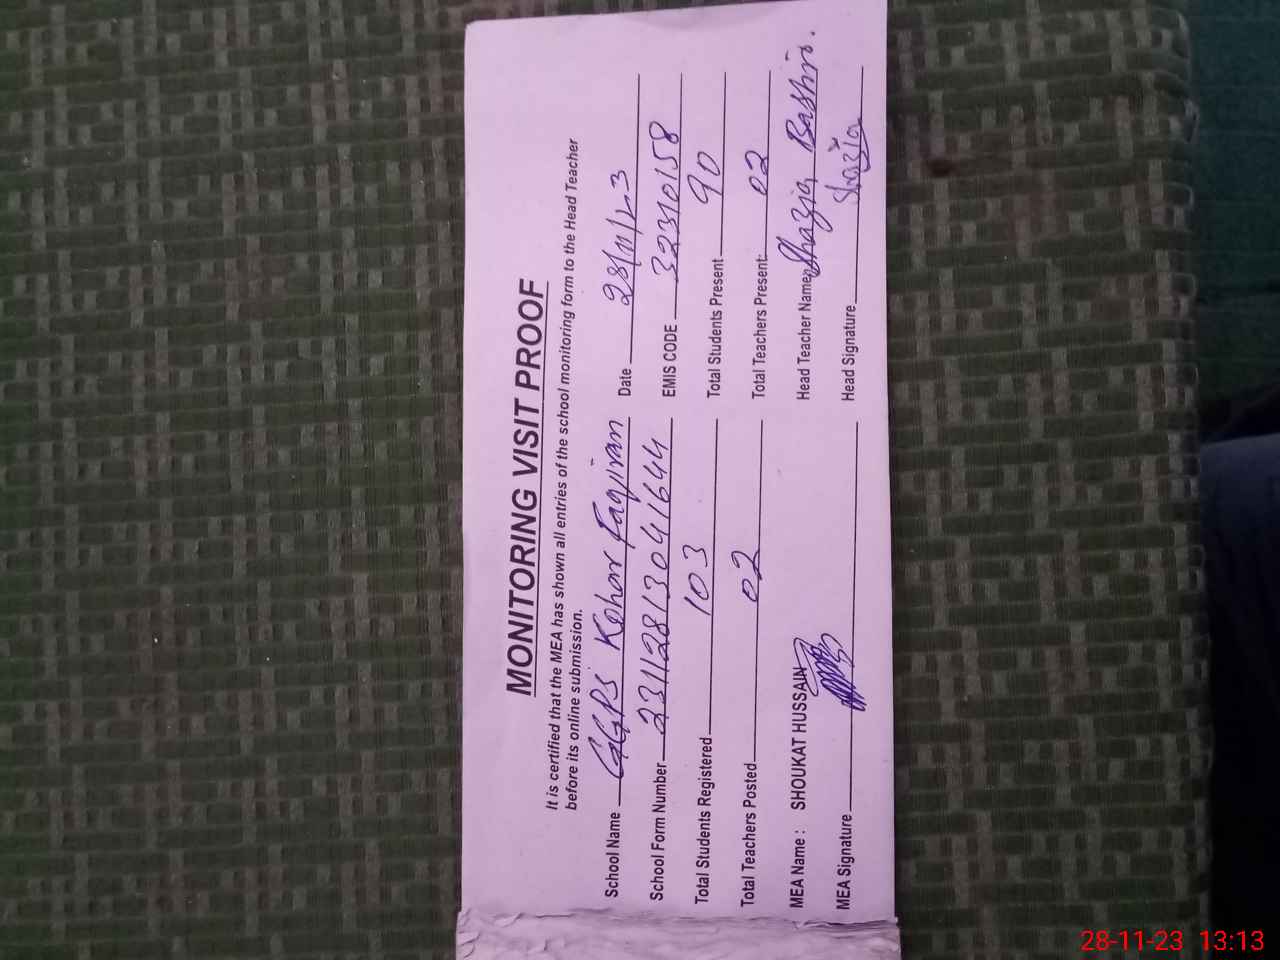 MONITORING VISIT PROOF
It is certified that the MEA has shown all entries of the school monitoring form to the Head Teacher
before its online submission.
School Name GGPS Kohar Faqiran Date 28/11/23
School Form Number 23112813041644 EMIS CODE 32310158
Total Students Registered 103 Total Students Present 90
Total Teachers Posted 02 Total Teachers Present: 02
MEA Name : SHOUKAT HUSSAIN Head Teacher Name Shazia Bashir.
MEA Signature Head Signature Shazia
28-11-23 13:13